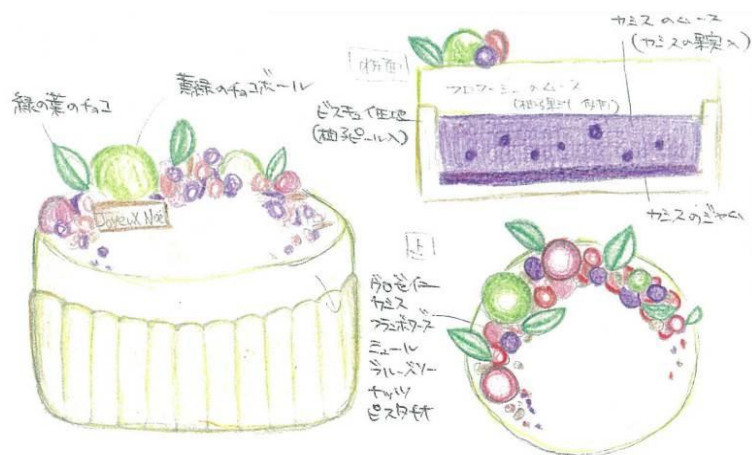 緑の葉のチョコ
黄緑のチョコボール
Joyeux Noël
(断面)
カシスのムース
(カシスの果実入)
フロマージュのムース
ビスキュイ生地
(柚子ピール入)
カシスのジャム
上
グロゼイユ
カシス
フランボワーズ
ミュール
ブルーベリー
ナッツ
ピスタチオ